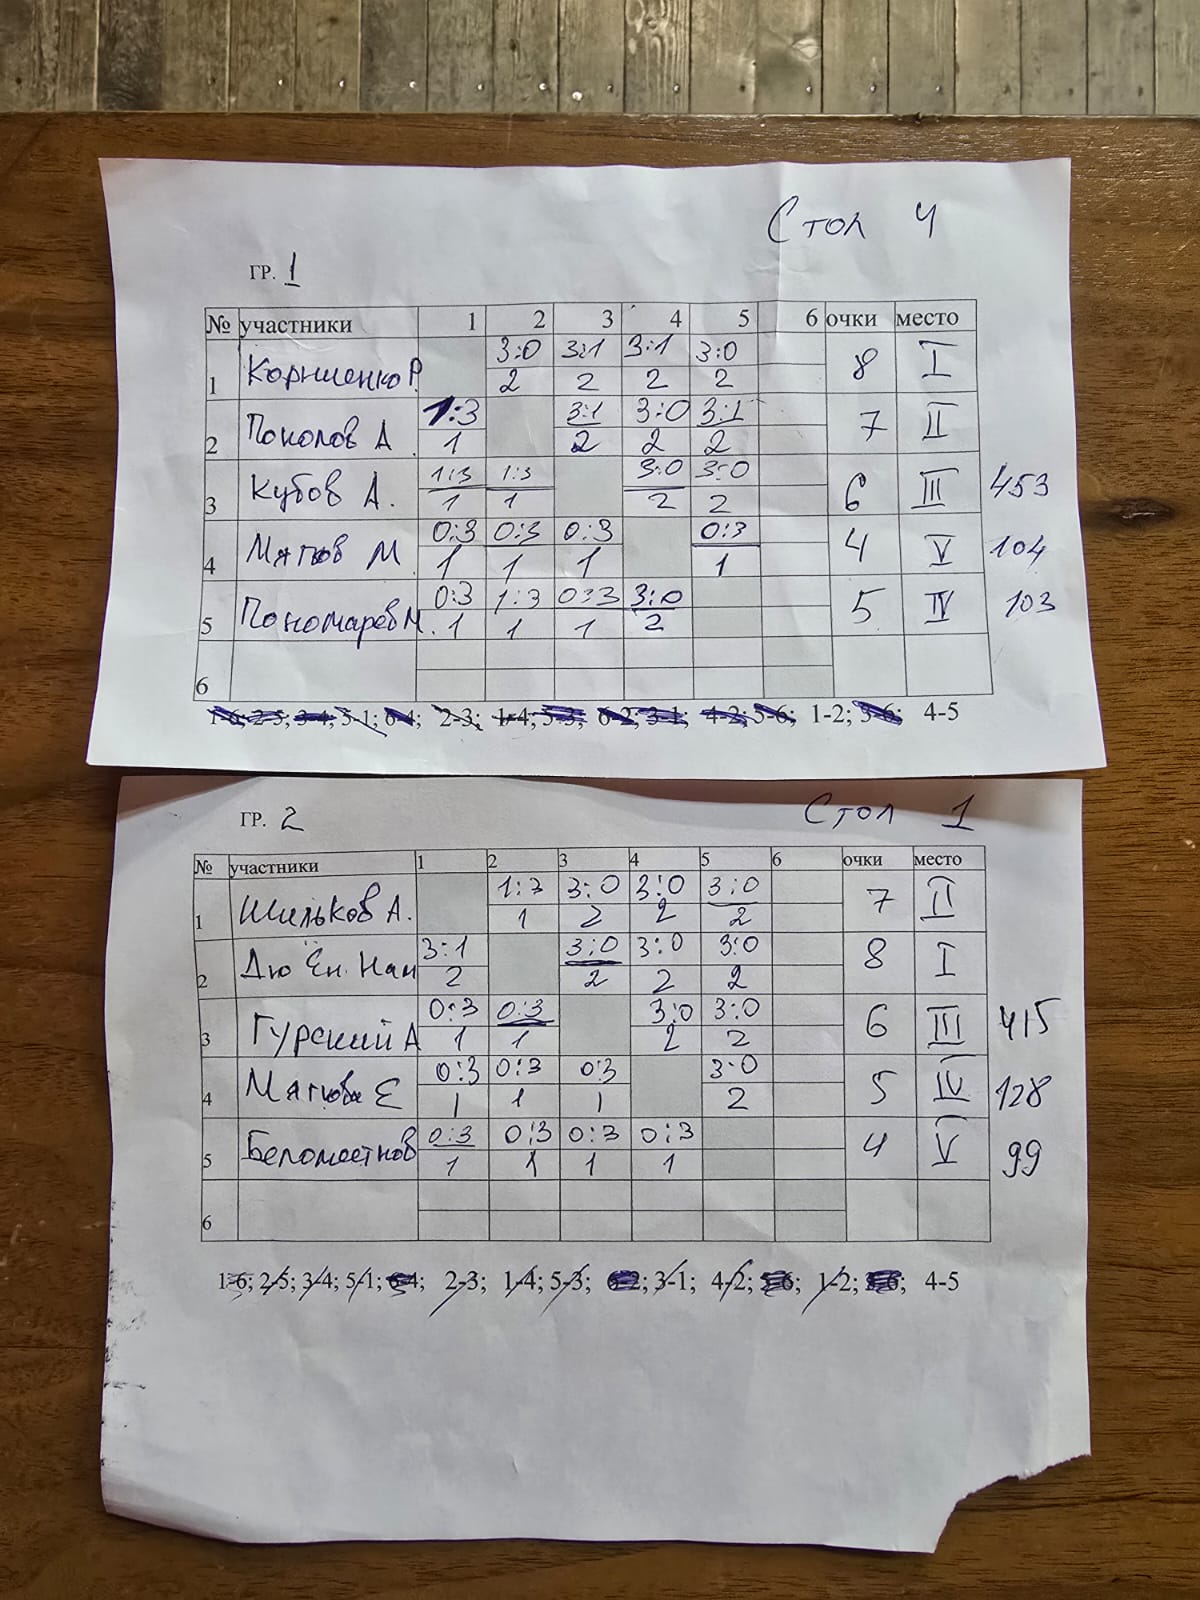 Стол 4
ГР. 1
№ участники 1 2 3 4 5 6 очки место
3:0 3:1 3:1 3:0
1 Корниенко Р. 8 I
2 2 2 2
1:3 3:1 3:0 3:1
2 А 7 II
1 2 2 2
1:3 1:3 3:0 3:0
3 Кубов А. 6 III 453
1 1 2 2
0:3 0:3 0:3 0:3
4 Мягков М 4 V 104
1 1 1 1
0:3 1:3 0:3 3:0
5 Пономарев М. 5 IV 103
1 1 1 2
6
1-6; 2-5; 3-4; 5-1; 6-4; 2-3; 1-4; 5-3; 6-2; 3-1; 4-2; 5-6; 1-2; 3-6; 4-5
ГР. 2 Стол 1
№ участники 1 2 3 4 5 6 очки место
1:3 3:0 3:0 3:0
1 Шильков А. 7 II
1 2 2 2
3:1 3:0 3:0 3:0
2 Дю Ен Нан 8 I
2 2 2 2
0:3 0:3 3:0 3:0
3 Гурский А 6 III 415
1 1 2 2
0:3 0:3 0:3 3:0
4 Мягкова Е 5 IV 128
1 1 1 2
0:3 0:3 0:3 0:3
5 Беломестнов 4 V 99
1 1 1 1
6
1-6; 2-5; 3-4; 5-1; 6-4; 2-3; 1-4; 5-3; 6-2; 3-1; 4-2; 5-6; 1-2; 3-6; 4-5